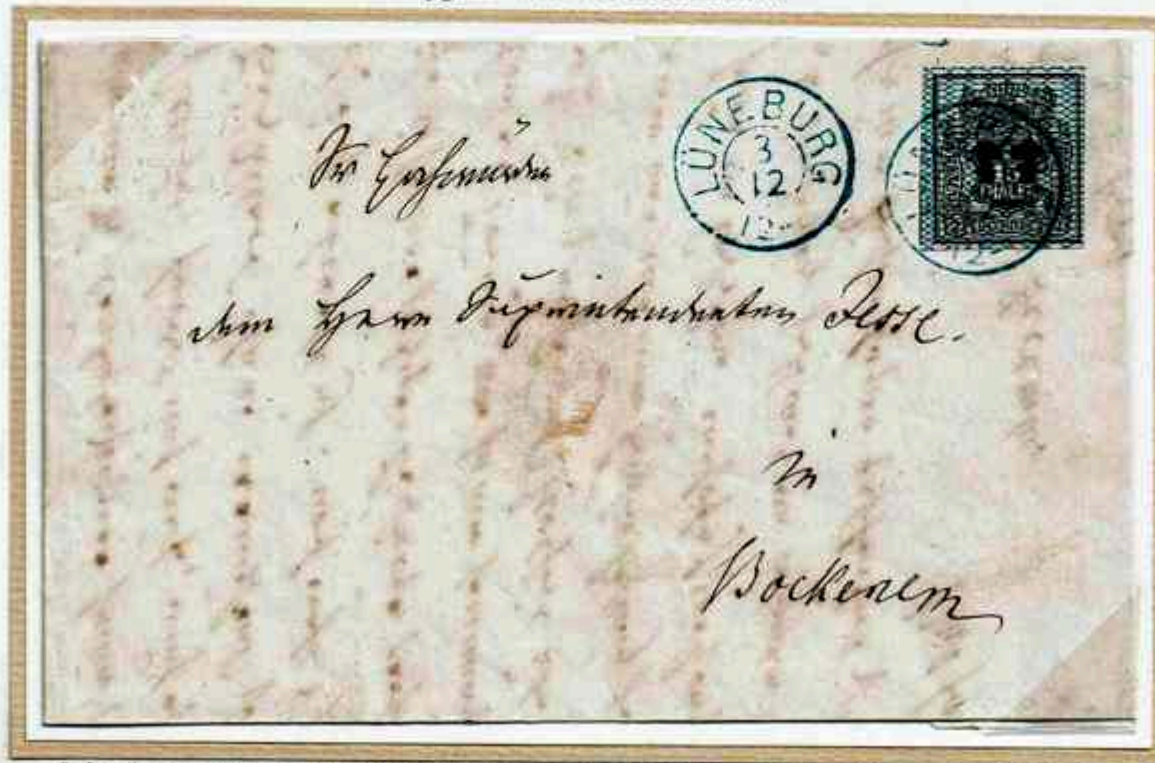 LÜNEBURG
3
12
12-
Sr Hochwürden
dem Herrn Superintendenten Jesse.
in
Bockenem
THALER